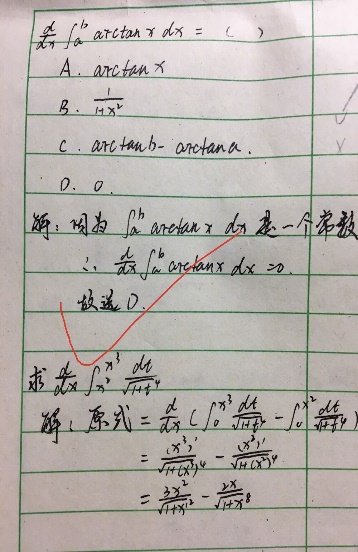 d/dx ∫ₐᵇ arctan x dx = ( )
A. arctan x
B. 1/(1+x²)
C. arctan b - arctan a.
D. 0.
解：因为 ∫ₐᵇ arctan x dx 是一个常数
∴ d/dx ∫ₐᵇ arctan x dx = 0.
故选 D.
求 d/dx ∫_{x²}^{x³} dt/√(1+t⁴)
解：原式 = d/dx (∫₀^{x³} dt/√(1+t⁴) - ∫₀^{x²} dt/√(1+t⁴))
= (x³)'/√(1+(x³)⁴) - (x²)'/√(1+(x²)⁴)
= 3x²/√(1+x¹²) - 2x/√(1+x⁸)